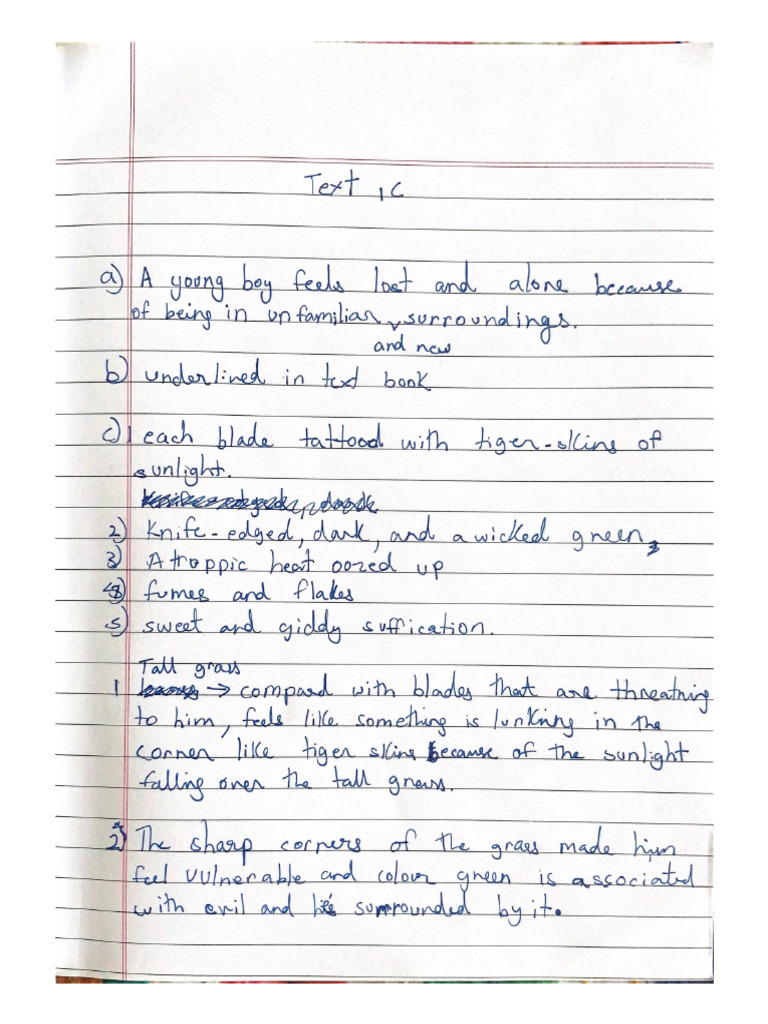 Text 1C
a) A young boy feels lost and alone because
of being in unfamiliar, surroundings.
and new
b) underlined in text book
c) 1 each blade tattooed with tiger-skins of
sunlight.
2) Knife-edged, dark, and a wicked green,
3) A troppic heat oozed up
4) fumes and flakes
5) sweet and giddy suffication.
Tall grass
1 → compard with blades that are threatning
to him, feels like something is lurking in the
corner like tiger skins because of the sunlight
falling over the tall grass.
2) The sharp corners of the grass made him
feel vulnerable and colour green is associated
with evil and he's surrounded by it.